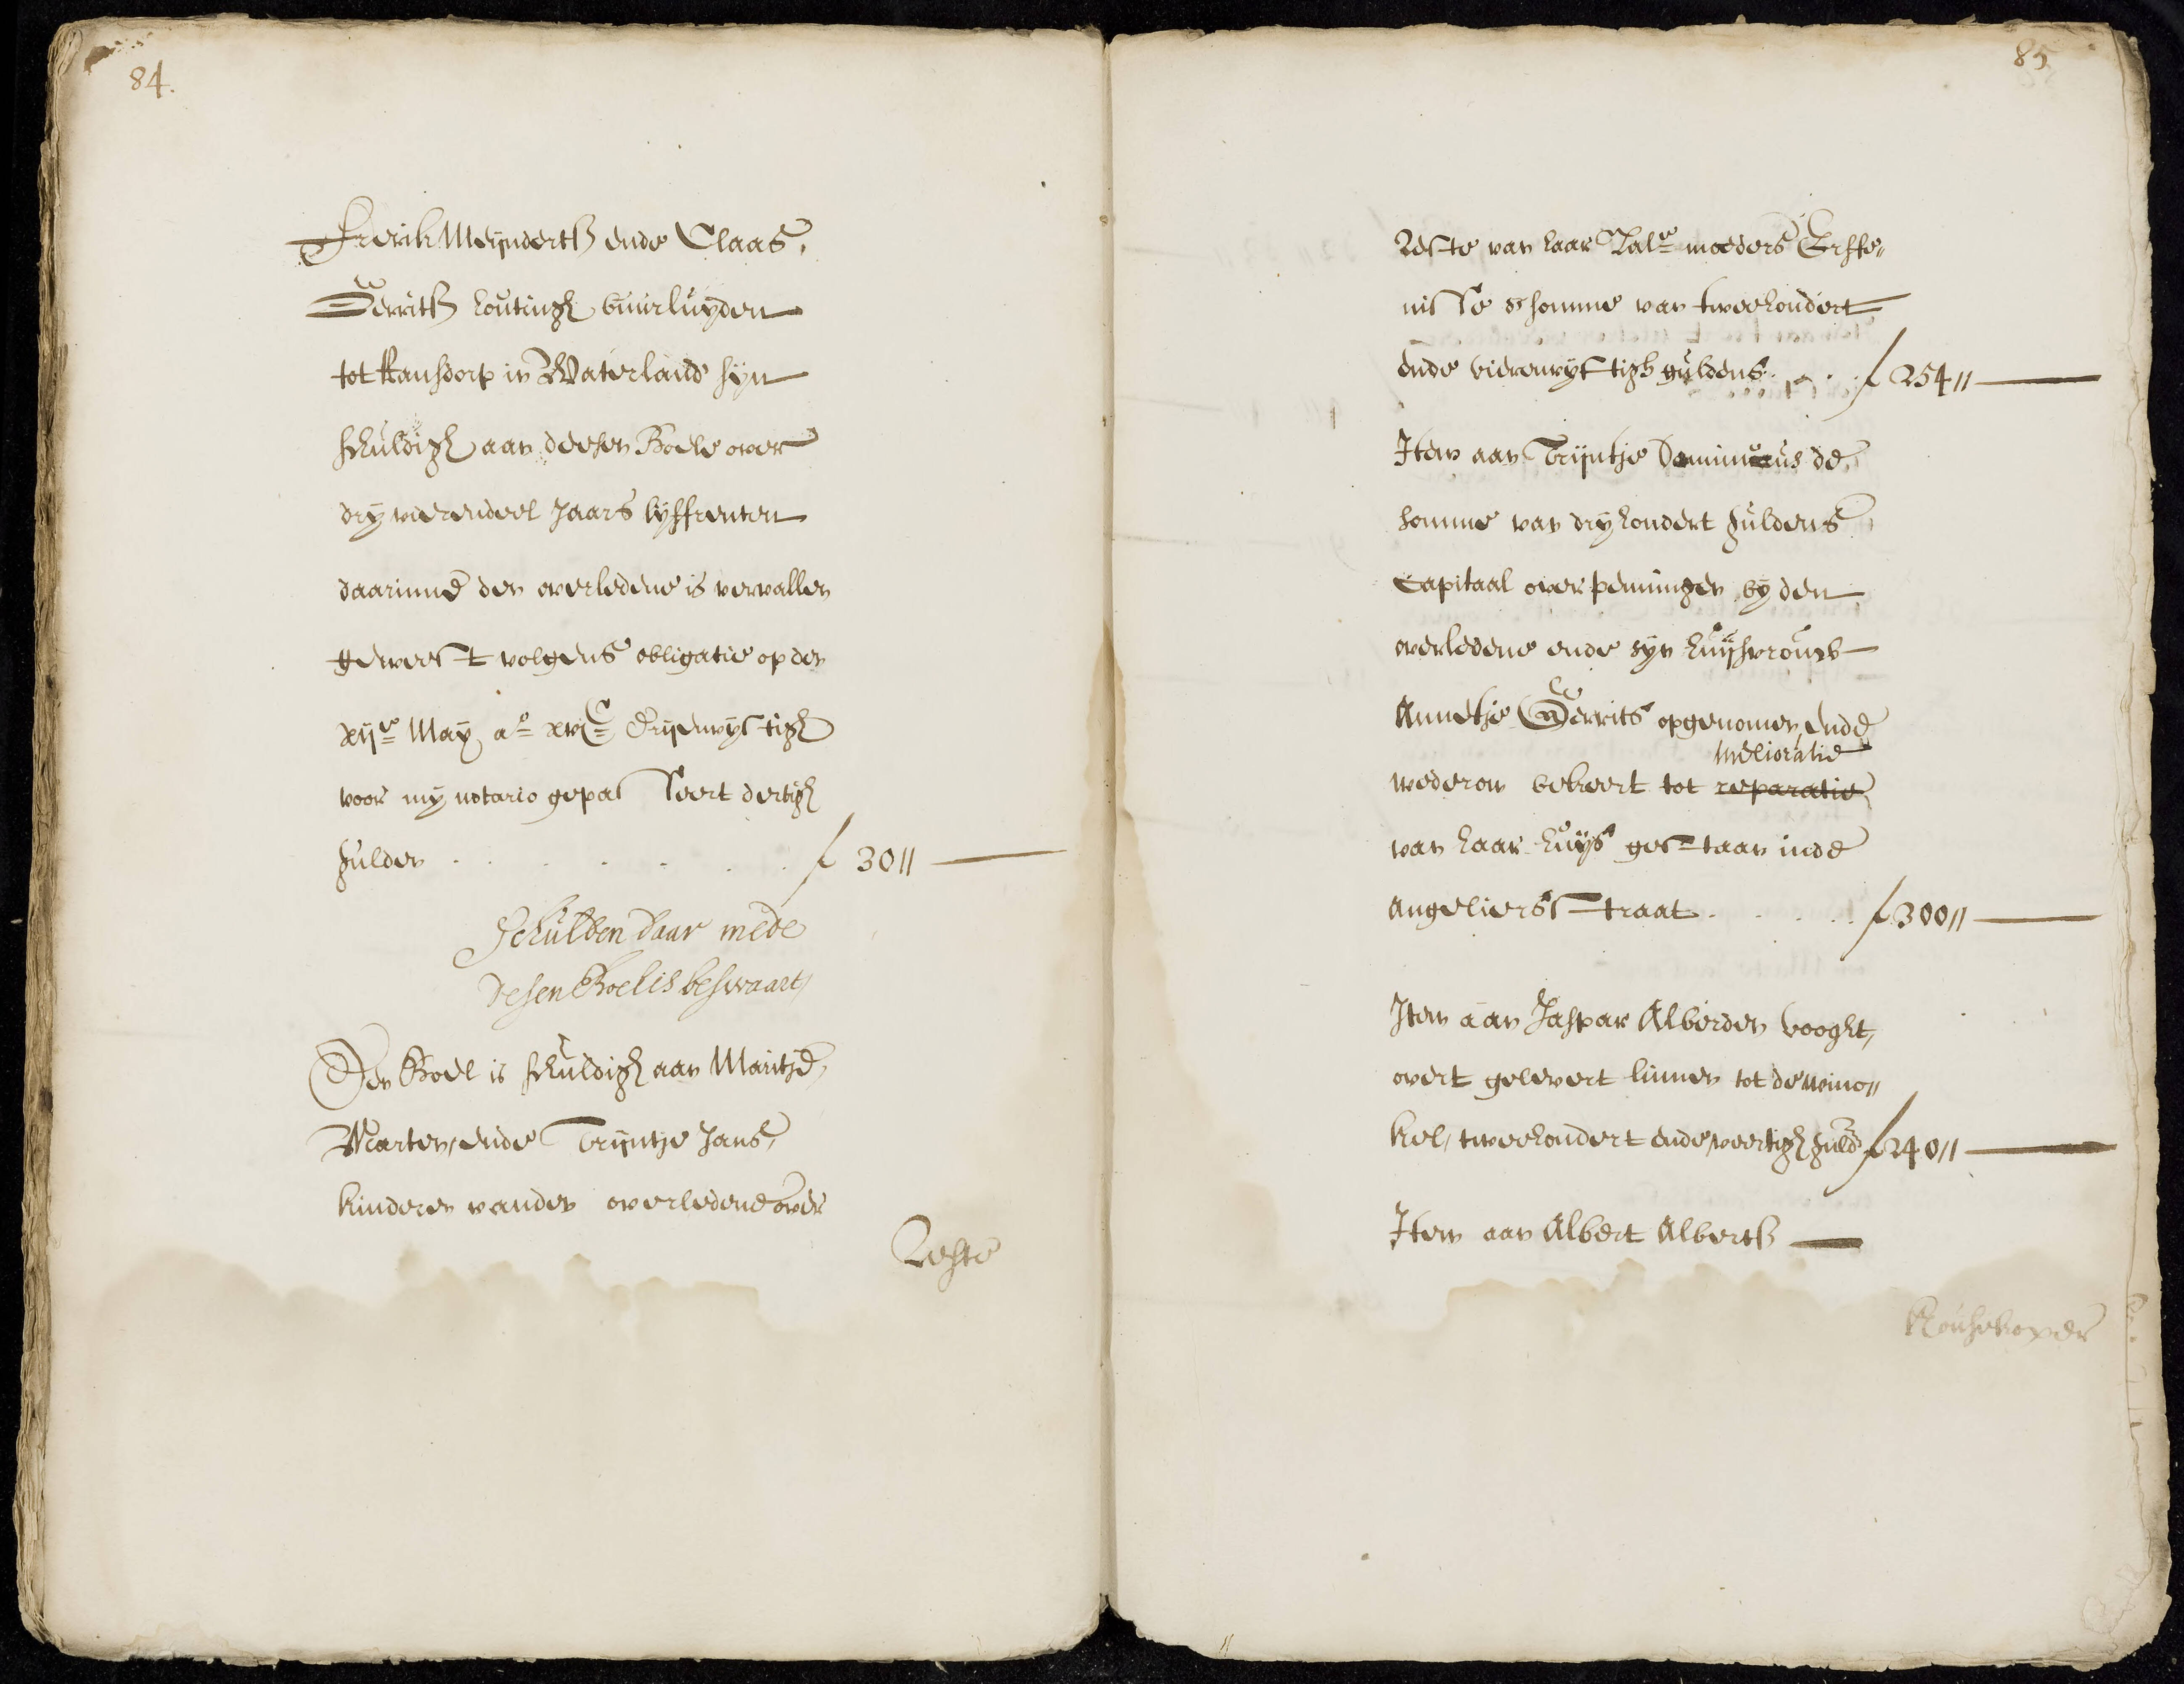 84.
Frerik Meijnderts ende Claas,
Gerrits houtingh buurluyden
tot Ransdorp in Waterland syn
schuldigh aan deesen Boele over
dry vierendeel Jaars lyffrenten
daarinne den overledene is vervallen
geweest volgens obligatie op den
xije May ao xvjC drijenvyftigh
voor my notario gepasseert dertigh
gulden . . . . . . f 30 // —
Schulden daar mede
desen Boel is beswaart,
Den Boel is schuldigh aan Maritje,
Marten, ende Trijntje Jans,
kinderen vanden overledene over
Reste
85
Reste van haar Zalr moeders Erffe„
nisse de somme van tweehondert
ende vierenvyftigh guldens . . . f 254 // —
Item aan Trijntje de
somme van dryhondert guldens
Capitaal over penningen by den
overledene ende syn huijsvrouw
Annetje Gerrits opgenomen, ende
melioratie
wederom bekeert tot reparatie
van haar huys gestaan inde
Angelierstraat . . . . . f 300 // —
Item aan Jaspar Alberden vooght,
overt gelevert linnen tot de winc„
kel, tweehondert ende veertigh guld f 240 // —
Item aan Albert Alberts —
Kousekoper